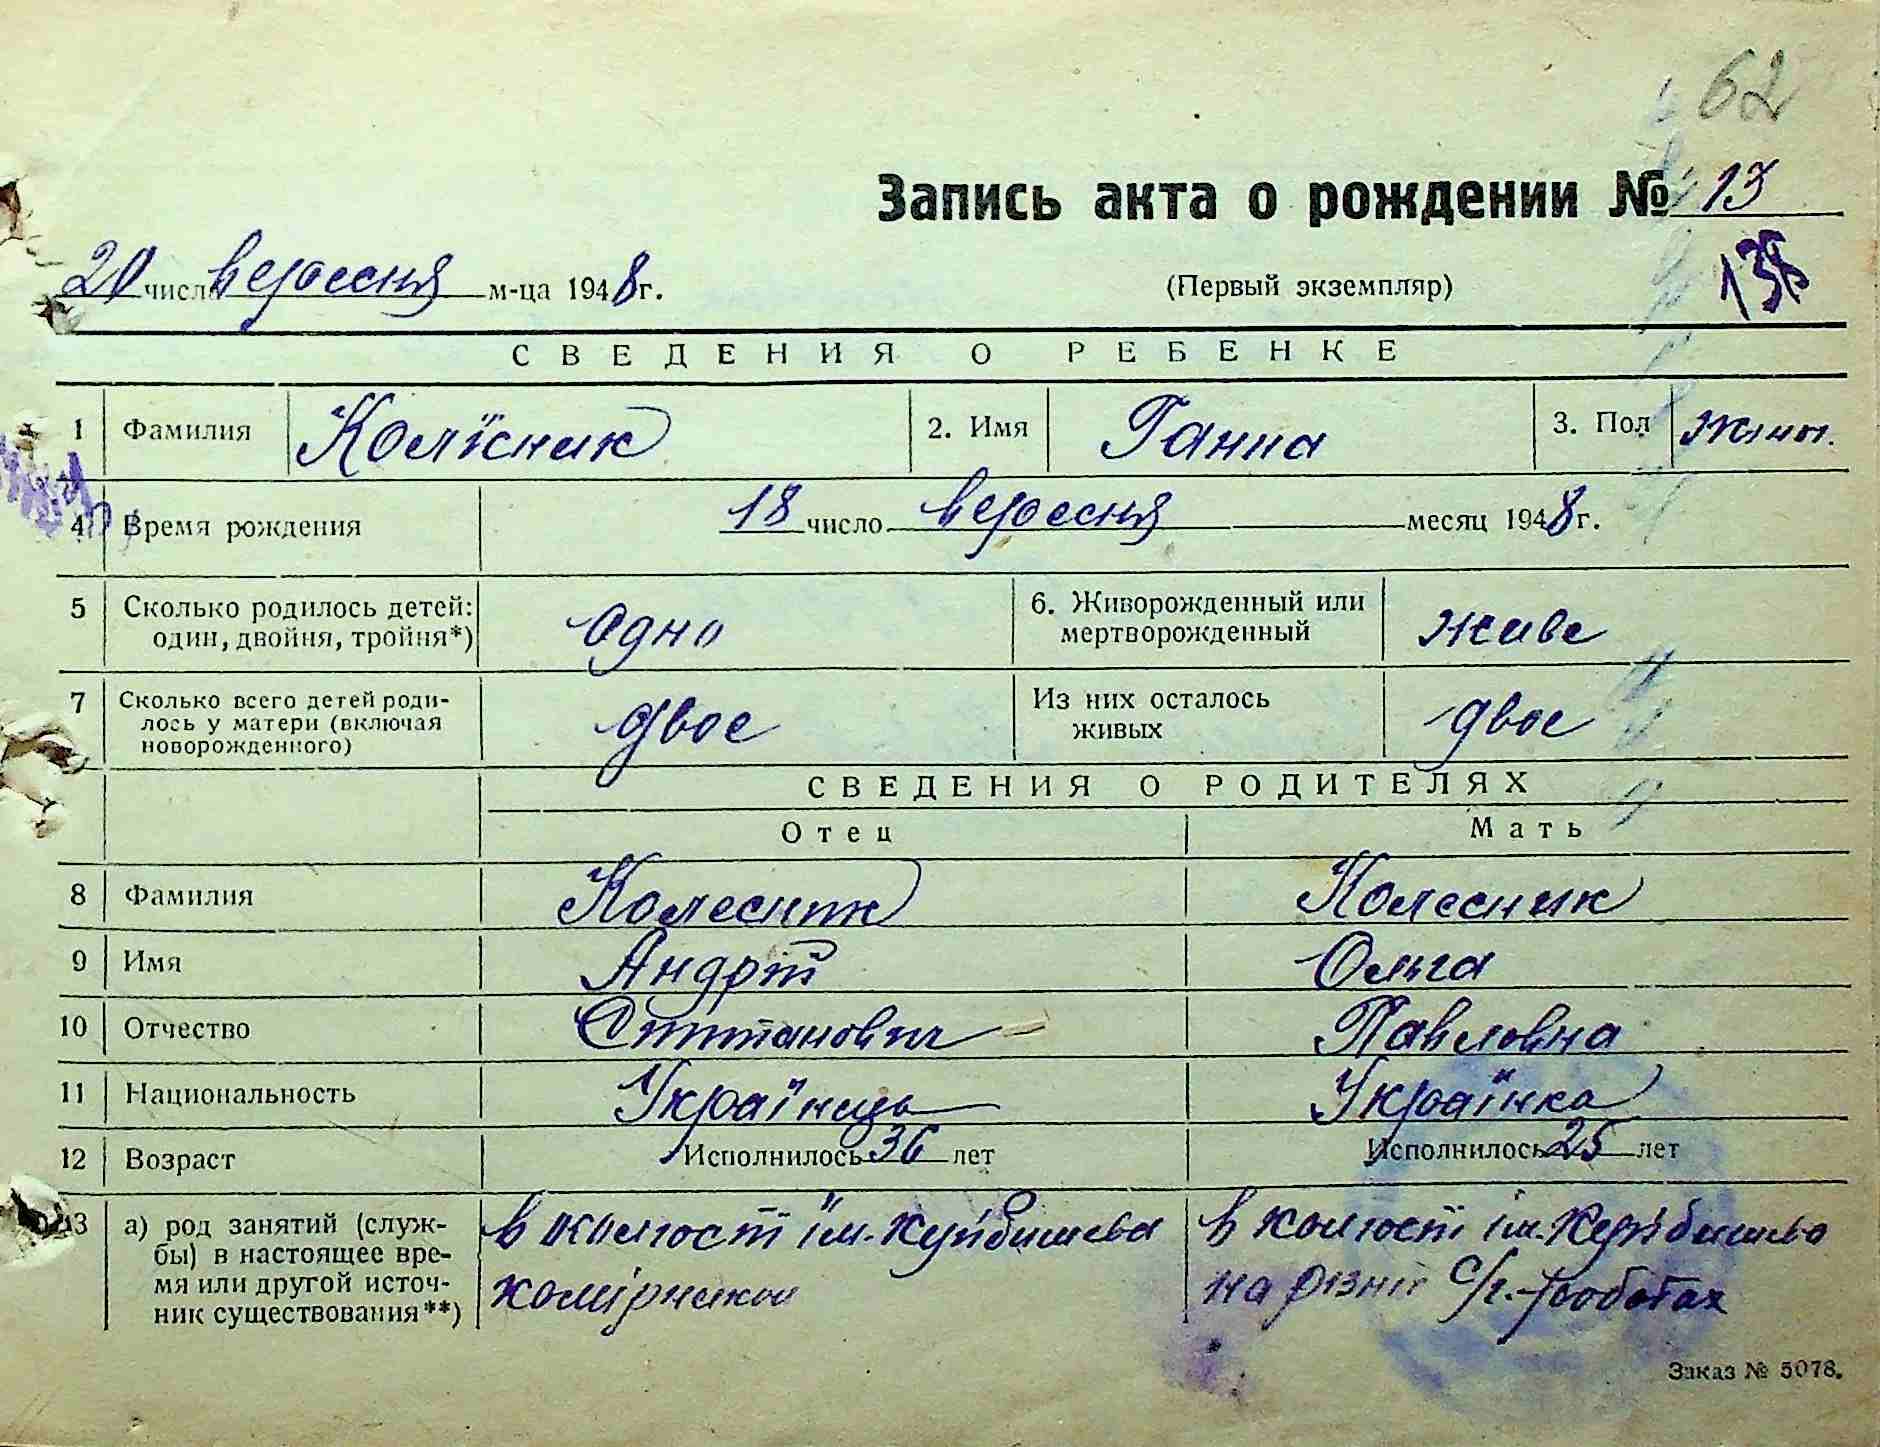 62
Запись акта о рождении № 13
20 число вересня м-ца 1948 г. (Первый экземпляр) 138
СВЕДЕНИЯ О РЕБЕНКЕ
1 Фамилия Колїсник 2. Имя Ганна 3. Пол жіноч.
4 Время рождения 18 число вересня месяц 1948 г.
5 Сколько родилось детей: одно 6. Живорожденный или живе
один, двойня, тройня*) мертворожденный
7 Сколько всего детей роди- двое Из них осталось двое
лось у матери (включая живых
новорожденного)
СВЕДЕНИЯ О РОДИТЕЛЯХ
Отец Мать
8 Фамилия Колесник Колесник
9 Имя Андрій Ольга
10 Отчество Степанович Павловна
11 Национальность Українець Українка
12 Возраст Исполнилось 36 лет Исполнилось 25 лет
13 а) род занятий (служ- в колгості їм. Куйбишева в колгості їм. Куйбишева
бы) в настоящее вре-
мя или другой источ- комірником на різних с/г. роботах
ник существования**)
Заказ № 5078.